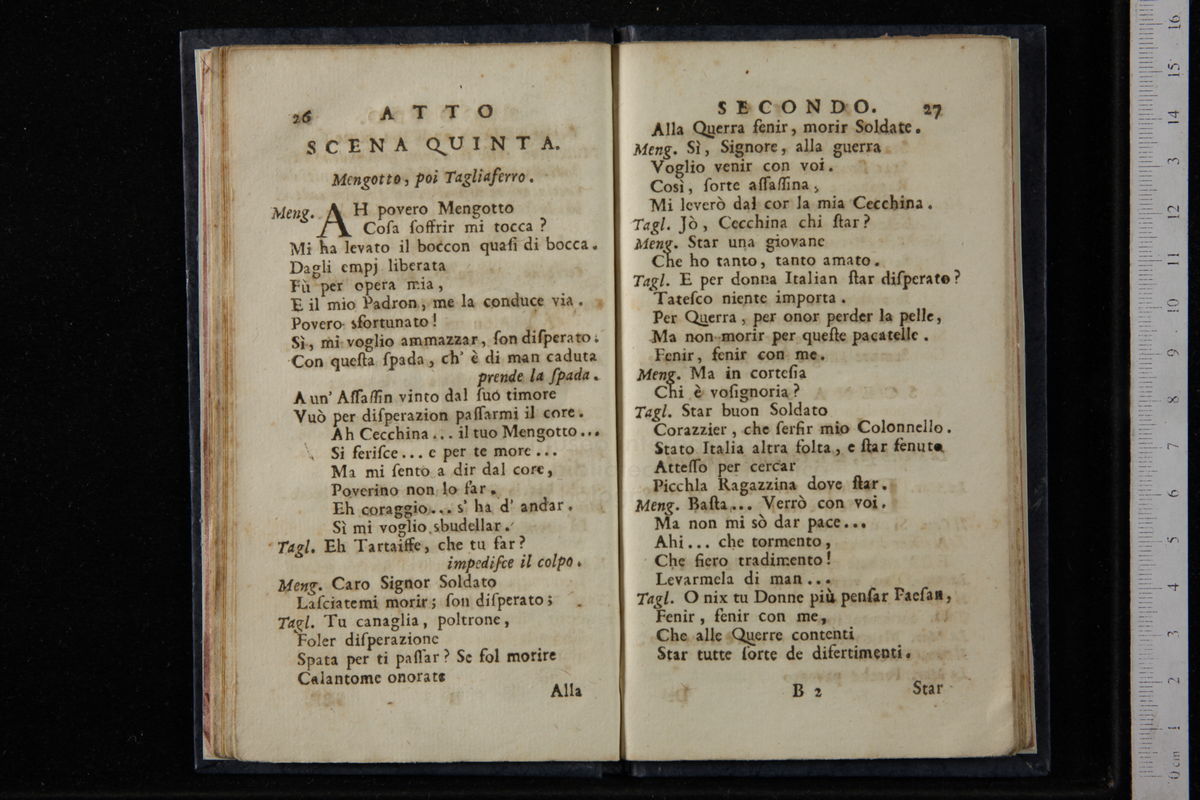 26 ATTO
SCENA QUINTA.
Mengotto, poi Tagliaferro.
Meng. AH povero Mengotto
Coſa ſoffrir mi tocca?
Mi ha levato il boccon quaſi di bocca.
Dagli empj liberata
Fù per opera mia,
E il mio Padron, me la conduce via.
Povero sfortunato!
Sì, mi voglio ammazzar, ſon diſperato.
Con queſta ſpada, ch' è di man caduta
prende la ſpada.
A un' Aſſaſſin vinto dal ſuo timore
Vuò per diſperazion paſſarmi il core.
Ah Cecchina... il tuo Mengotto...
Si feriſce... e per te more...
Ma mi ſento a dir dal core,
Poverino non lo far.
Eh coraggio... s' ha d' andar.
Sì mi voglio sbudellar.
Tagl. Eh Tartaiffe, che tu far?
impediſce il colpo.
Meng. Caro Signor Soldato
Laſciatemi morir; ſon diſperato;
Tagl. Tu canaglia, poltrone,
Foler diſperazione
Spata per ti paſſar? Se fol morire
Calantome onorate
Alla
SECONDO. 27
Alla Querra fenir, morir Soldate.
Meng. Sì, Signore, alla guerra
Voglio venir con voi.
Così, ſorte aſſaſſina,
Mi leverò dal cor la mia Cecchina.
Tagl. Jò, Cecchina chi ſtar?
Meng. Star una giovane
Che ho tanto, tanto amato.
Tagl. E per donna Italian ſtar diſperato?
Tateſco niente importa.
Per Querra, per onor perder la pelle,
Ma non morir per queſte pacatelle.
Fenir, fenir con me.
Meng. Ma in corteſia
Chi è voſignoria?
Tagl. Star buon Soldato
Corazzier, che ferfir mio Colonnello.
Stato Italia altra folta, e ſtar fenuto
Atteſſo per cercar
Picchla Ragazzina dove ſtar.
Meng. Baſta... Verrò con voi.
Ma non mi sò dar pace...
Ahi... che tormento,
Che fiero tradimento!
Levarmela di man...
Tagl. O nix tu Donne più penſar Paeſan,
Fenir, fenir con me,
Che alle Querre contenti
Star tutte ſorte de difertimenti.
B 2 Star
0 cm 1 2 3 4 5 6 7 8 9 10 11 12 13 14 15 16